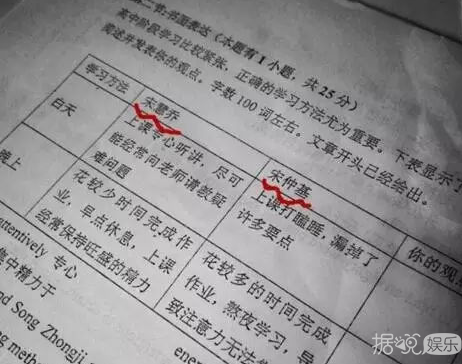 第二节:书面表达(本题有1小题,共25分)
高中阶段学习比较紧张,正确的学习方法尤为重要。下表显示了
简述并发表你的观点,字数100词左右。文章开头已经给出。
学习方法
宋慧乔
宋仲基
你的观
白天
上课专心听讲,尽可
能经常向老师请教疑
难问题
上课打瞌睡,漏掉了
许多要点
晚上
花较少时间完成作
业,早点休息,上课
经常保持旺盛的精力
花较多的时间完成
作业,熬夜学习,导
致注意力无法
attentively 专心
集中精力于
nd Song Zhongji
g meth
ener
据说娱乐